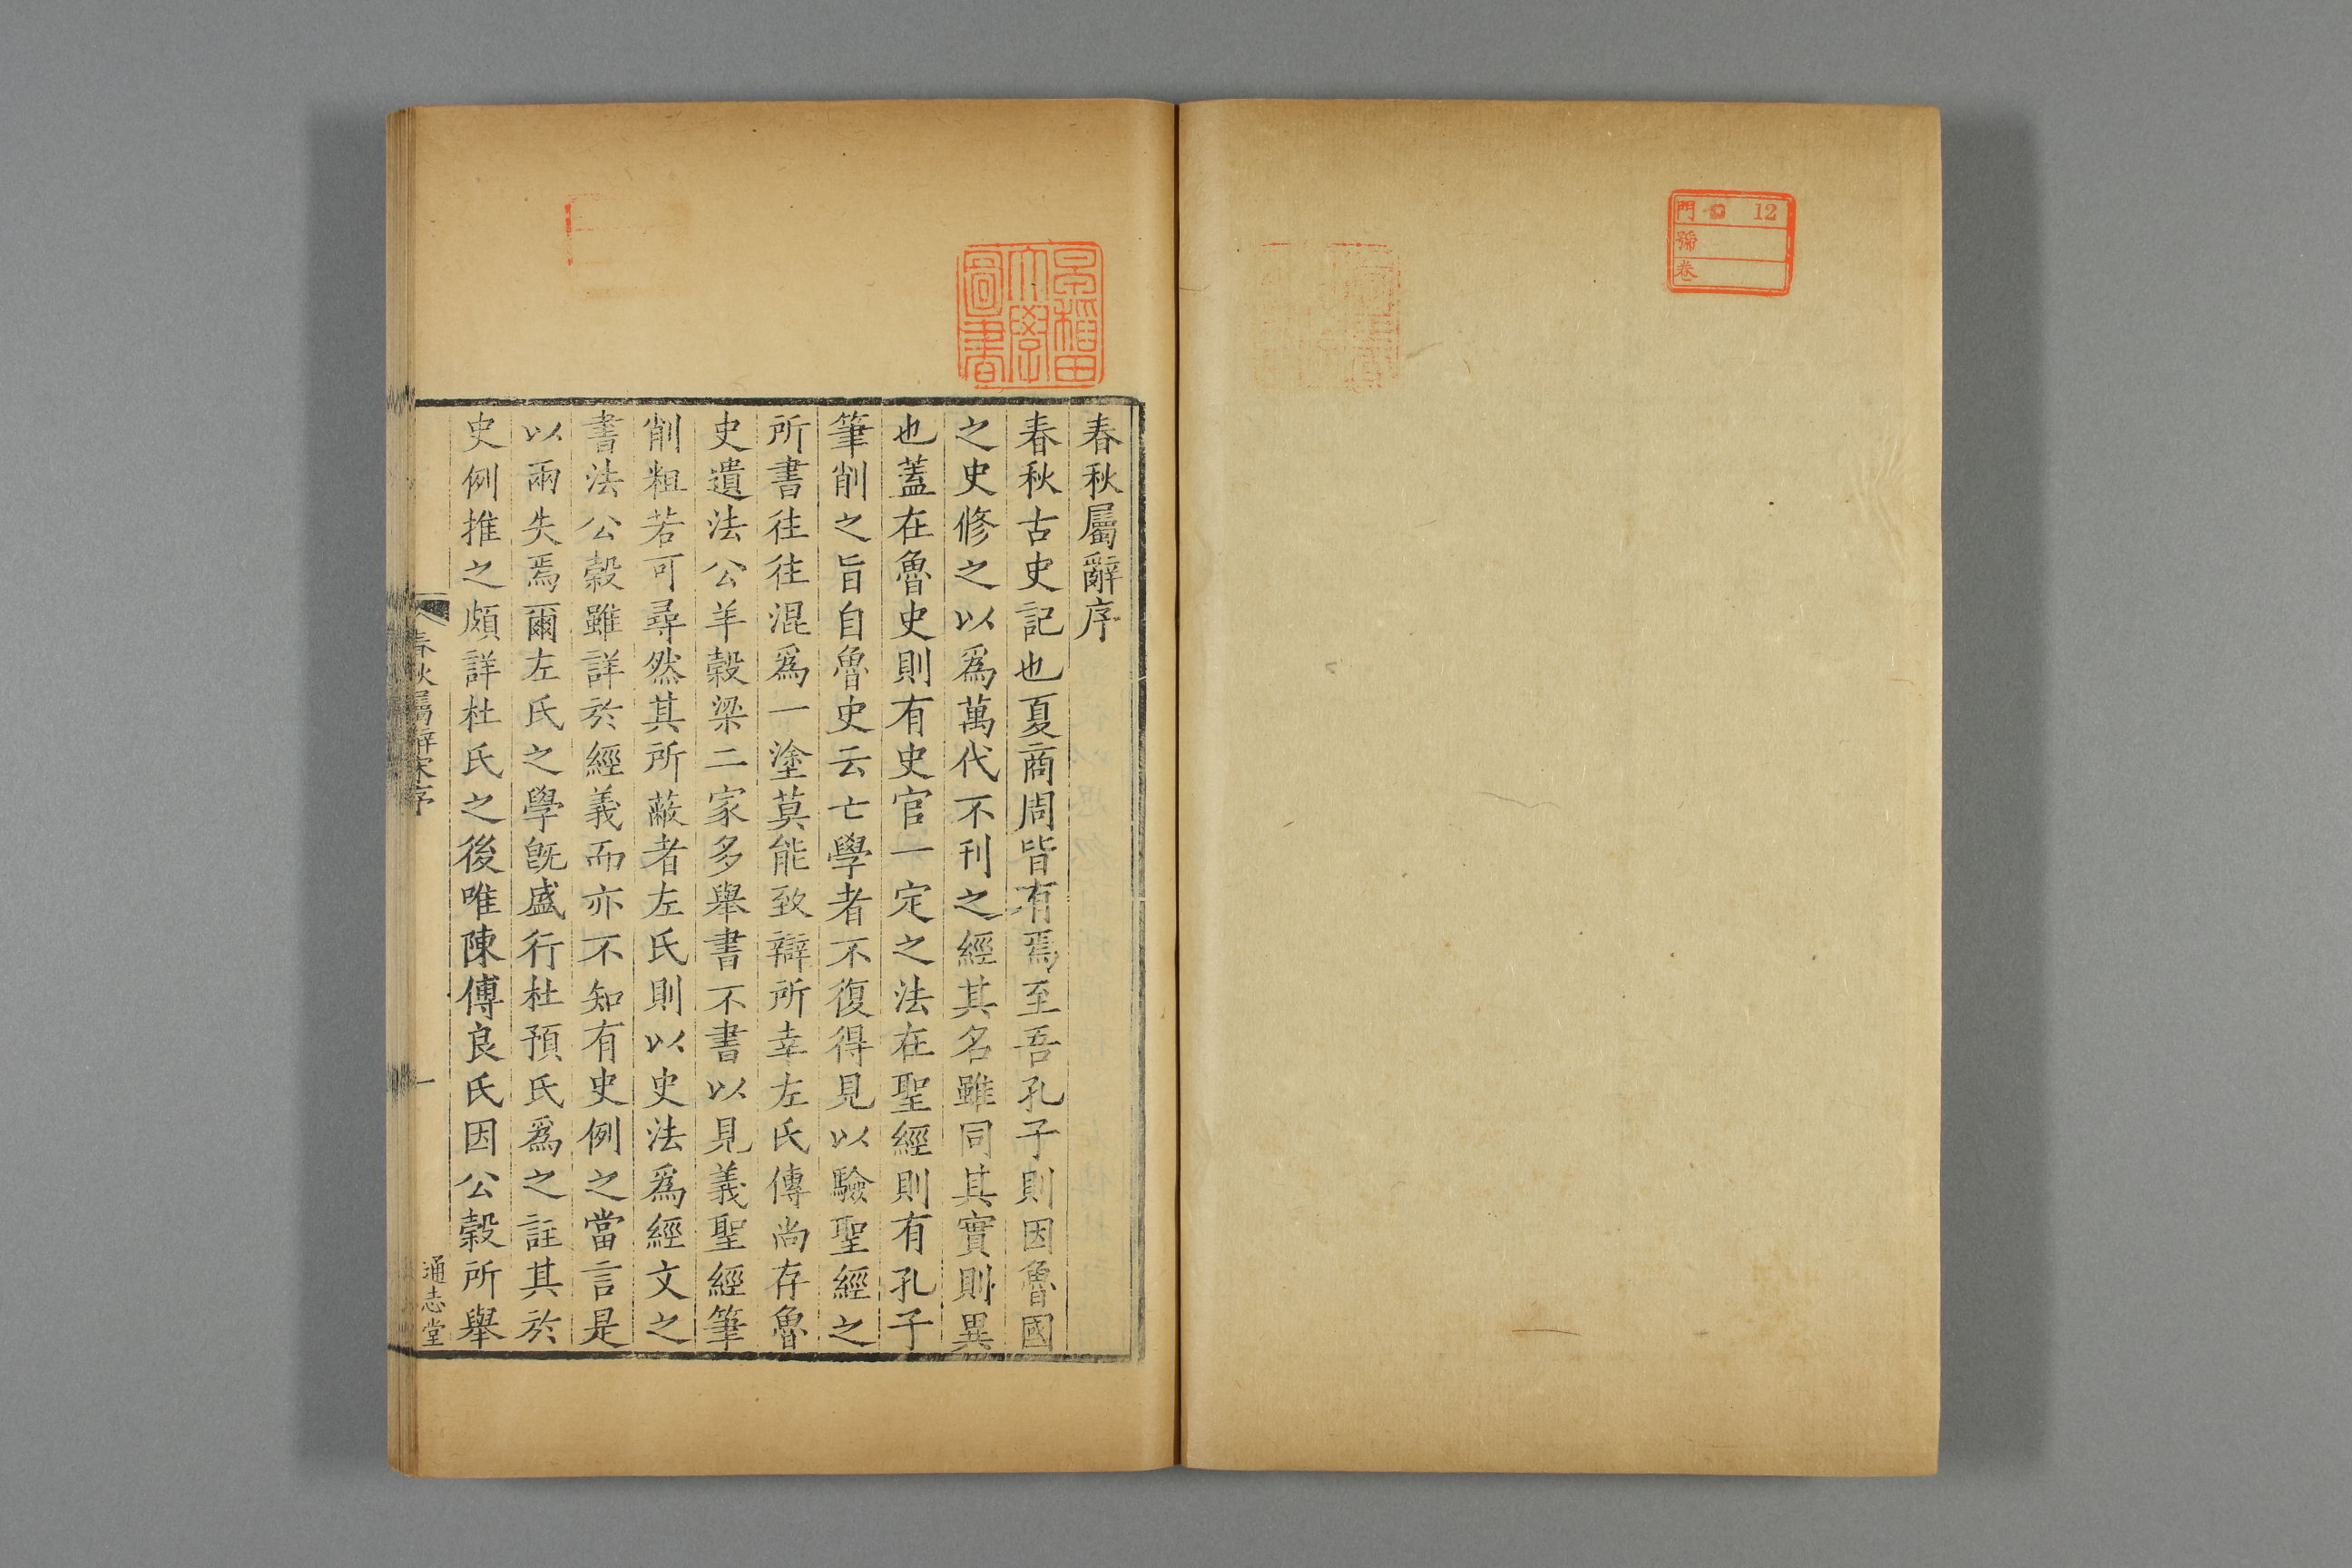 門 12
號
卷
早稻田
大學
圖書
春秋屬辭序
春秋古史記也夏商周皆有焉至吾孔子則因魯國
之史修之以爲萬代不刊之經其名雖同其實則異
也蓋在魯史則有史官一定之法在聖經則有孔子
筆削之旨自魯史云亡學者不復得見以驗聖經之
所書往往混爲一塗莫能致辯所幸左氏傳尚存魯
史遺法公羊穀梁二家多舉書不書以見義聖經筆
削粗若可尋然其所蔽者左氏則以史法爲經文之
書法公穀雖詳於經義而亦不知有史例之當言是
以兩失焉爾左氏之學旣盛行杜預氏爲之註其於
史例推之頗詳杜氏之後唯陳傅良氏因公穀所舉
春秋屬辭宋序
一
通志堂